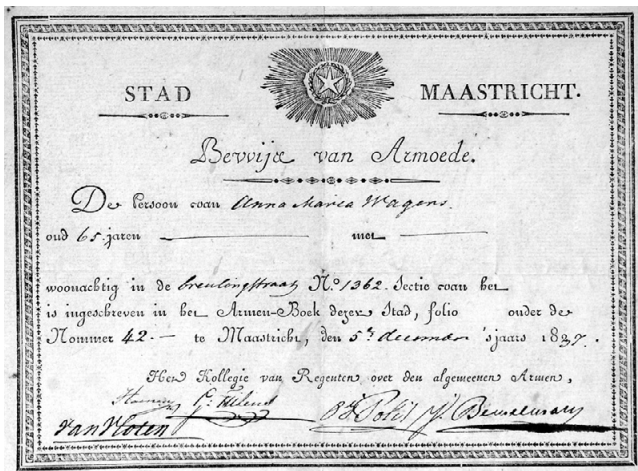 STAD MAASTRICHT.
Bewijs van Armoede.
De Persoon van Anna Maria Wagens
oud 65 jaren met
woonachtig in de No. 1362. Sectie van het
is ingeschreven in het Armen-Boek dezer Stad, folio onder de
Nommer 42.— te Maastricht, den 5n december 'sjaars 1837.
Het Kollegie van Regenten over den algemeenen Armen,
van Vloten